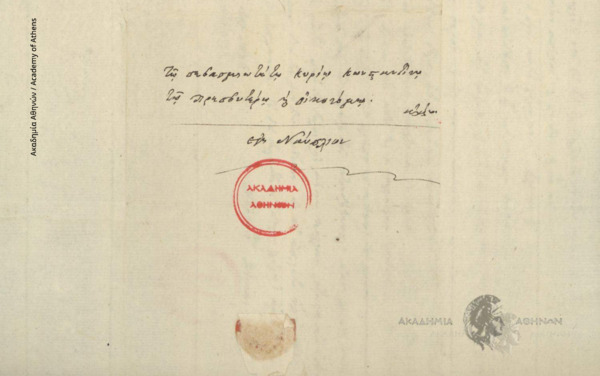 Ακαδημία Αθηνών / Academy of Athens
τῷ σεβασμιωτάτῳ κυρίῳ κωνσταντίνῳ
τῷ πρεσβυτέρῳ ϗ οἰκονόμῳ.
εἰς Ναύπλιον
ΑΚΑΔΗΜΙΑ
ΑΘΗΝΩΝ
ΑΚΑΔΗΜΙΑ ΑΘΗΝΩΝ